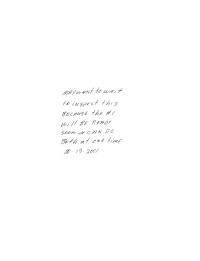 may want to wait
to inspect this
because the #1
will be ready
soon & can do
both at one time
10-19-2001